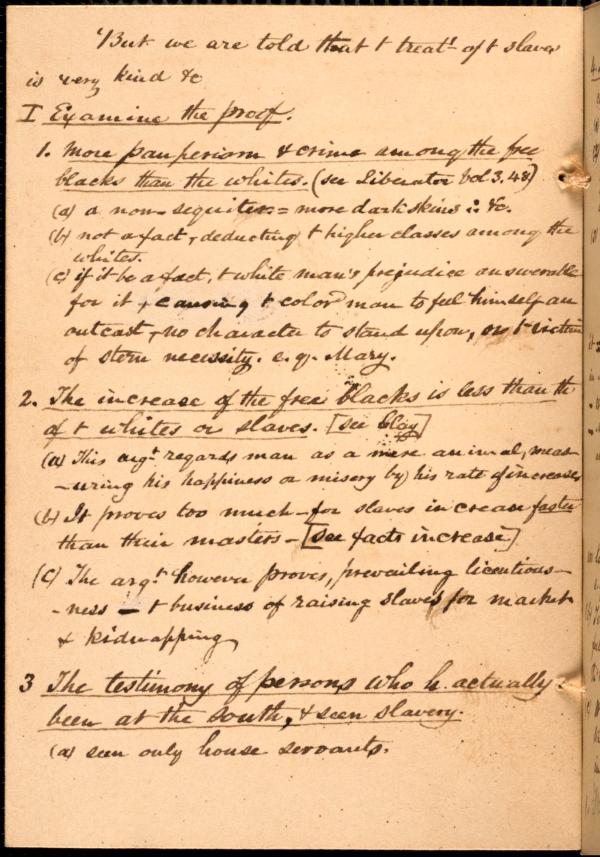 "But we are told that t treat.t of t slaves
is very kind &c
I Examine the proof.
1. More pauperism & crime among the free
blacks than the whites. (see Liberator Vol 3. 48)
(a) a non-sequiter = more dark skins ∴ &c.
(b) not a fact, deducting t higher classes among the
whites.
(c) if it be a fact, t white man's prejudice answerable
for it, causing t color.d man to feel himself an
outcast, no character to stand upon, or t victim
of stern necessity. e.g. Mary.
2. The increase of the free blacks is less than th
of t whites or slaves. [see Clay]
(a) This arg.t regards man as a mere animal, meas-
-uring his happiness or misery by his rate of increase.
(b) It proves too much - for slaves increase faster
than their masters - [see facts increase]
(c) The arg.t however proves, prevailing licentious-
-ness - t business of raising slaves for market
& kidnapping
3 The testimony of persons who h. actually
been at the south, & seen slavery.
(a) seen only house servants.